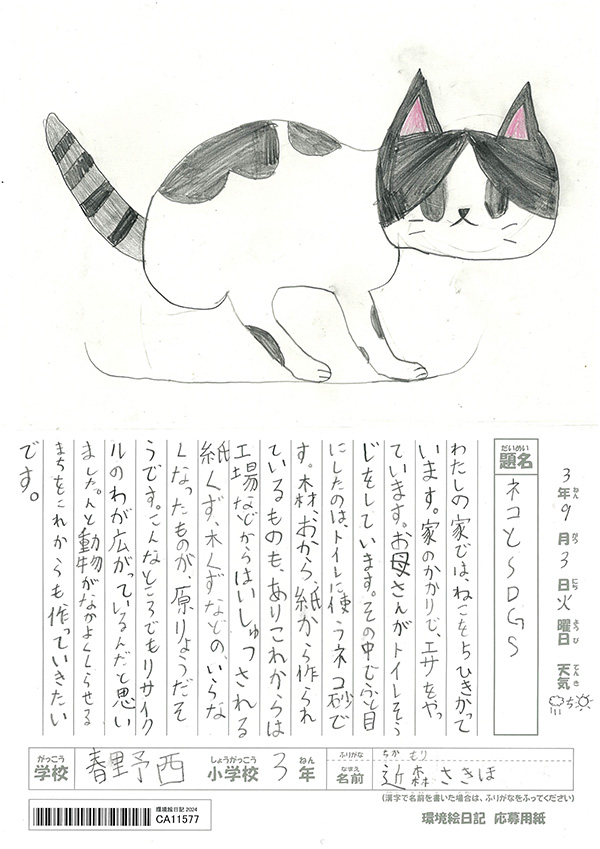 3年ねん9月がつ3日にち火曜日ようび 天気てんき
だいめい
題名
ネコとSDGS
わたしの家では、ねこを5ひきかって
います。家のかかりで、エサをやっ
ています。お母さんがトイレそう
じをしています。その中でふと目
にしたのは、トイレに使うネコ砂で
す。木、おから、紙から作られ
ているものも、ありこれからは
工場などからはいしゅつされる
紙くず、木くずなどの、いらな
くなったものが、原りょうだそ
うです。こんなところでもリサイク
ルのわが広がっているんだと思い
ました。人と動物がなかよくくらせる
まちをこれからも作っていきたい
です。
がっこう しょうがっこう ねん
学校 春野西 小学校 3年
ふりがな ちか もり
なまえ
名前 近森さきほ
(漢字で名前を書いた場合は、ふりがなをふってください)
環境絵日記 2024
CA11577
環境絵日記 応募用紙